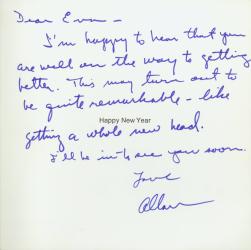 Dear Evan –
I'm happy to hear that you
are well on the way to getting
better. This may turn out to
be quite remarkable – like
Happy New Year
getting a whole new head.
I'll be in to see you soon.
Love
Allan